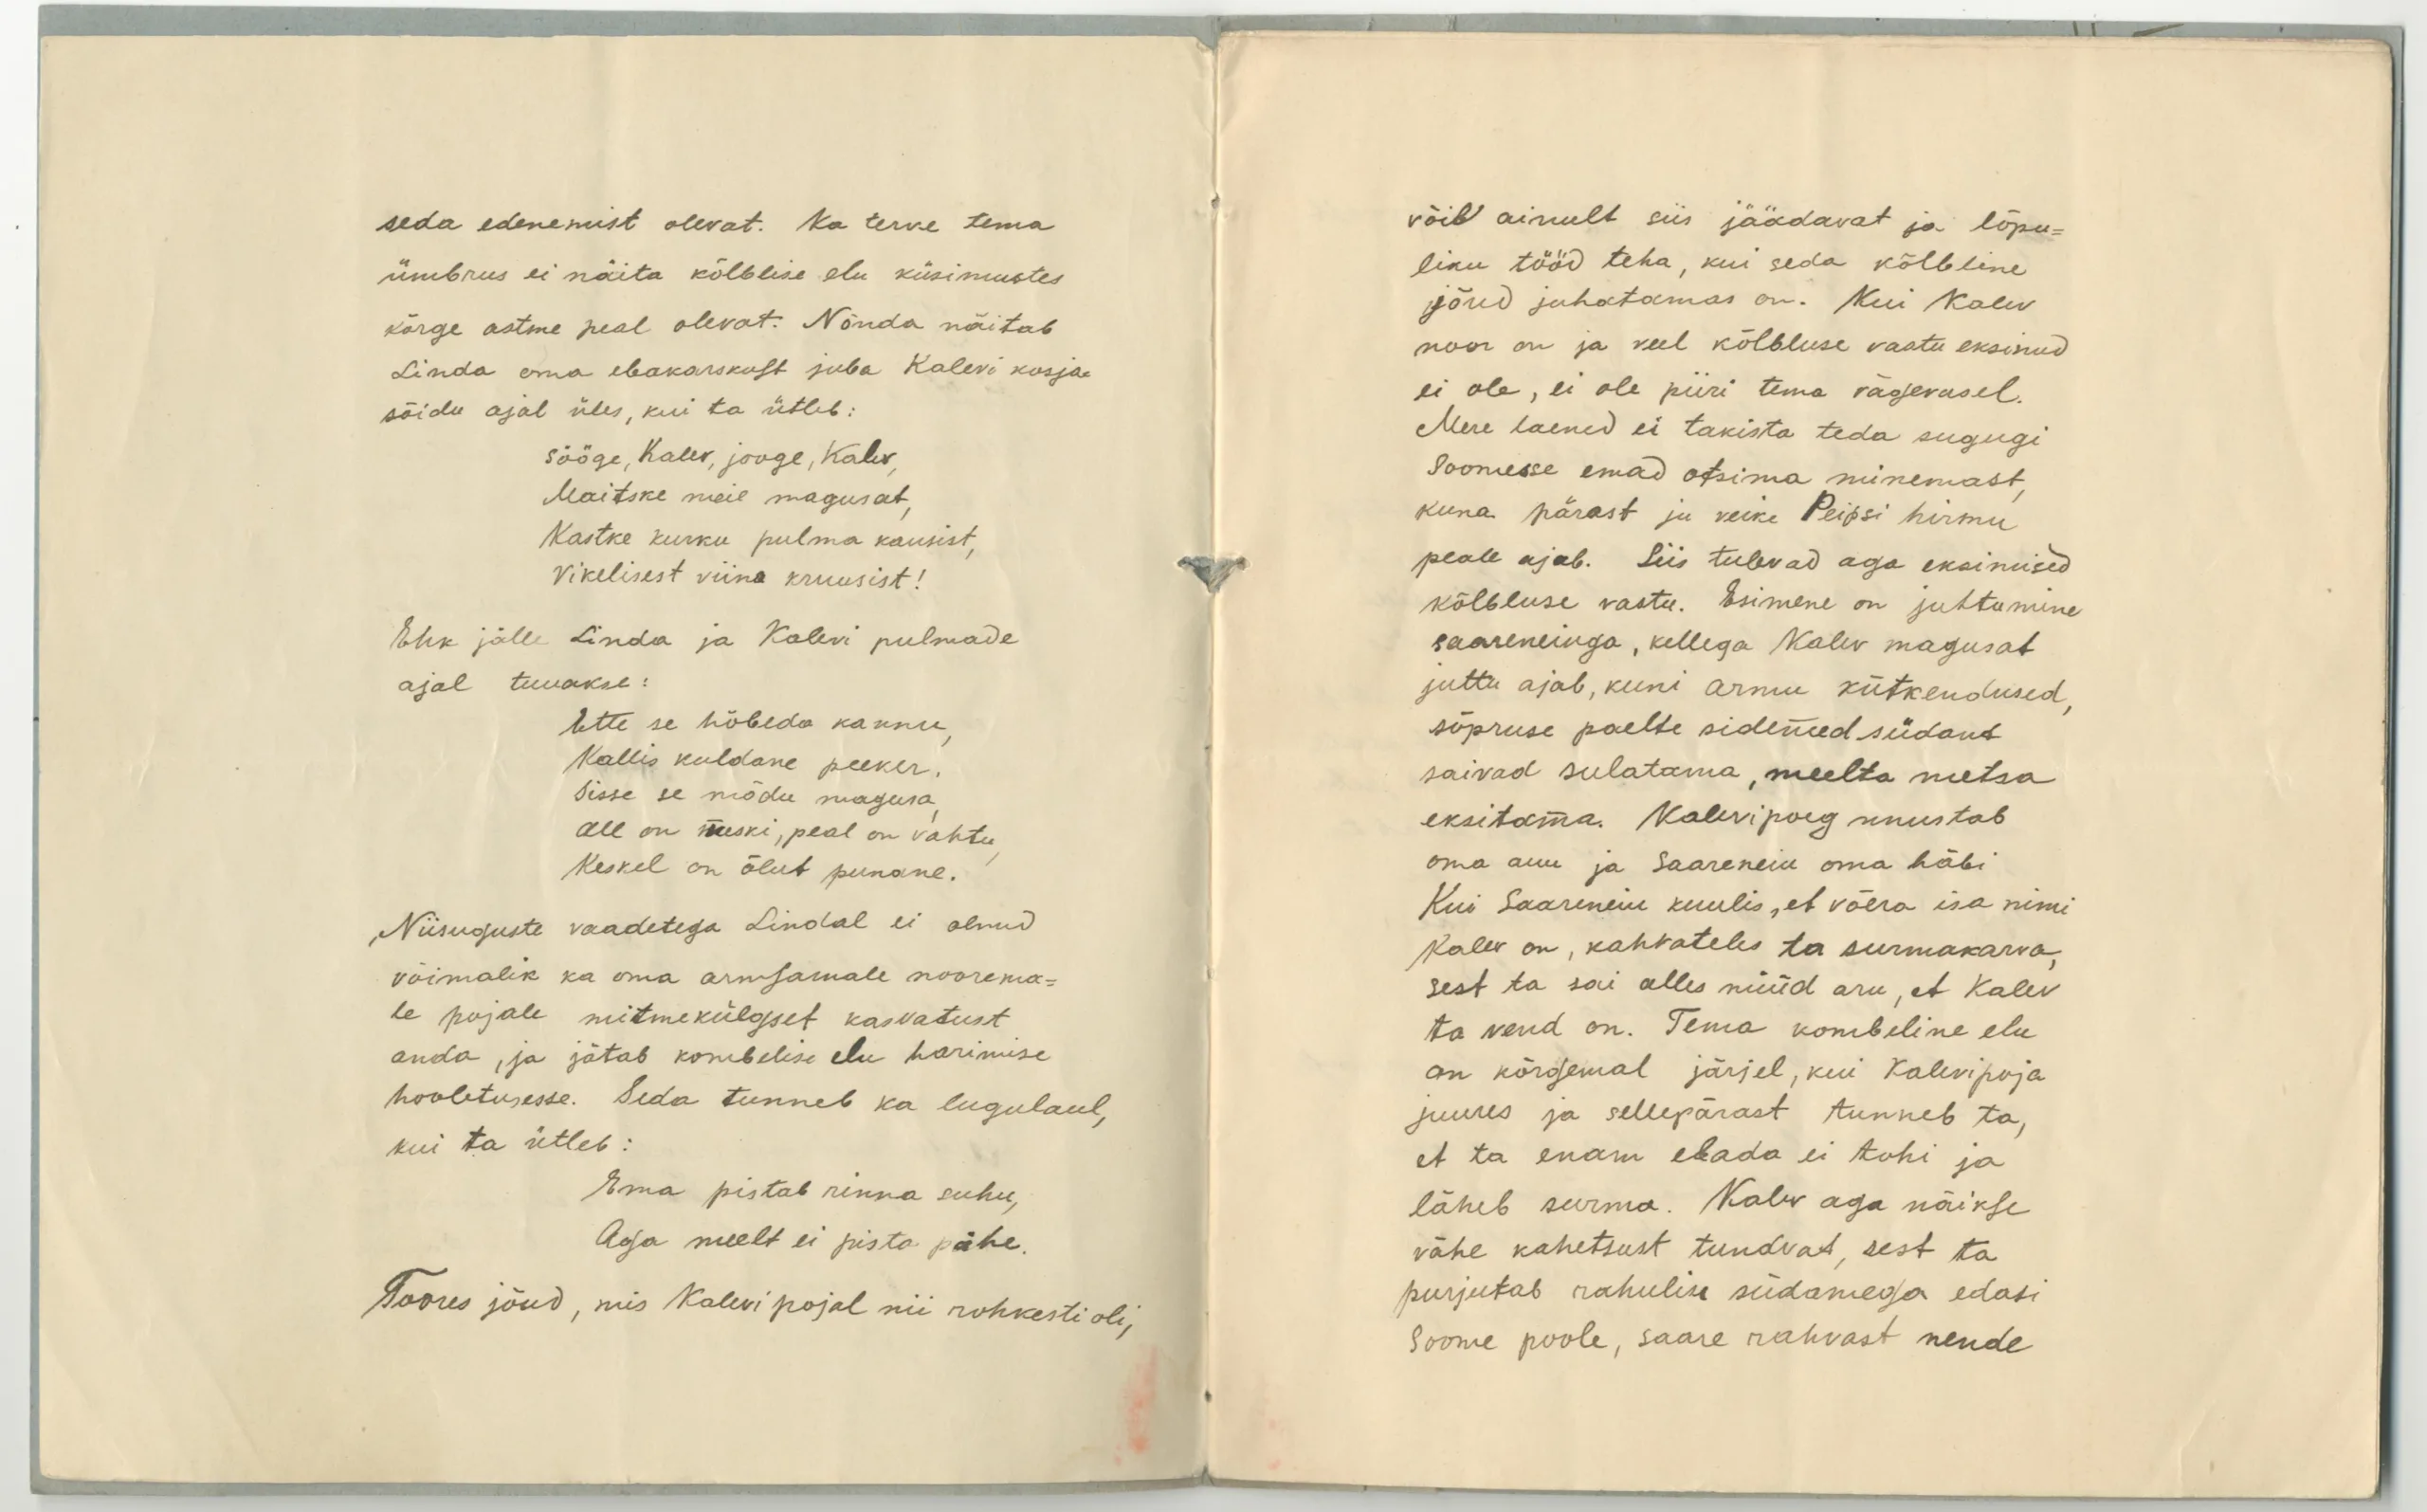 seda edenemist olevat. Ka terve tema
ümbrus ei näita kõlblise elu küsimustes
kõrge astme peal olevat. Nõnda näitab
Linda oma ebakarskust juba Kalevi kosja-
sõidu ajal üles, kui ta ütleb:
Sööge, Kalev, jooge, Kalev,
Maitske meie magusat,
Kastke kurku pulma kausist,
Vikelisest viina kruusist!
Ehk jälle Linda ja Kalevi pulmade
ajal tuuakse:
Ette se hõbeda kannu,
Kallis kuldane peeker,
Sisse se mõdu magusa,
All on meski, peal on vahtu,
Keskel on õlut punane.
Niisuguste vaadetega Lindal ei olnud
võimalik ka oma armsamale noorema=
le pojale mitmekülgset kasvatust
anda, ja jätab kombelise elu harimise
hooletusesse. Seda tunneb ka lugulaul,
kui ta ütleb:
Ema pistab rinna suhu,
Aga meelt ei pista pähe.
Toores jõud, mis Kalevi pojal nii rohkesti oli,
võib ainult siis jäädavat ja lõpu=
liku tööd teha, kui seda kõlbline
jõud juhatamas on. Kui Kalev
noor on ja veel kõlbluse vastu eksinud
ei ole, ei ole piiri tema vägevusel.
Mere laened ei takista teda sugugi
Soomesse emad otsima minemast,
kuna pärast ju veike Peipsi hirmu
peale ajab. Siis tulevad aga eksimised
kõlbluse vastu. Esimene on juhtumine
saareneiuga, kellega Kalev magusat
juttu ajab, kuni armu kütkendused,
sõpruse paelte sidemed südant
saivad sulatama, meelta metsa
eksitama. Kalevipoeg unustab
oma auu ja Saareneiu oma häbi
Kui Saareneiu kuulis, et võera isa nimi
Kalev on, kahvateles ta surmakarva,
sest ta sai alles nüüd aru, et Kalev
ta vend on. Tema kombeline elu
on kõrgemal järjel, kui Kalevipoja
juures ja sellepärast tunneb ta,
et ta enam elada ei tohi ja
läheb surma. Kalev aga näikse
vähe kahetsust tundvat, sest ta
purjutab rahulise südamega edasi
Soome poole, saare rahvast nende